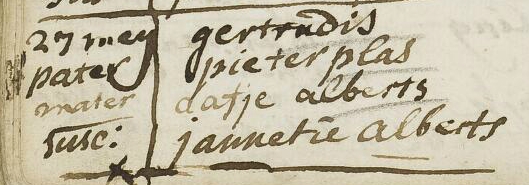 27 mey gertrudis
pater pieter plas
mater aafje alberts
susc: jannetie alberts